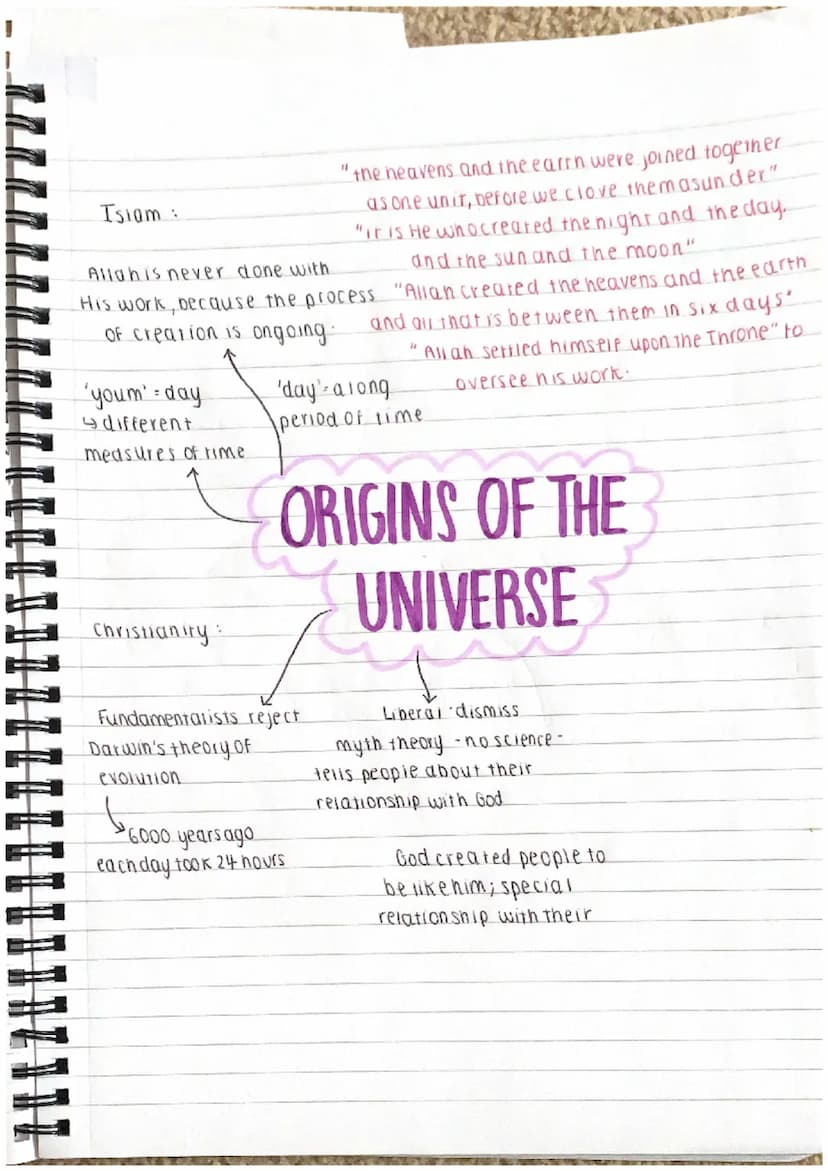 Islam :
"the heavens and the earth were joined together
as one unit, before we clove them asunder"
"it is He who created the night and the day,
and the sun and the moon"
"Allah created the heavens and the earth
and all that is between them in six days"
"Allah settled himself upon the Throne" to
oversee his work.
Allah is never done with
His work, because the process
of creation is ongoing.
'youm' = day
↳ different
measures of time
'day' = a long
period of time
ORIGINS OF THE
UNIVERSE
Christianity :
Fundamentalists reject
Darwin's theory of
evolution
6000 years ago
each day took 24 hours
Liberal · dismiss
myth theory - no science -
tells people about their
relationship with God
God created people to
be like him; special
relationship with their